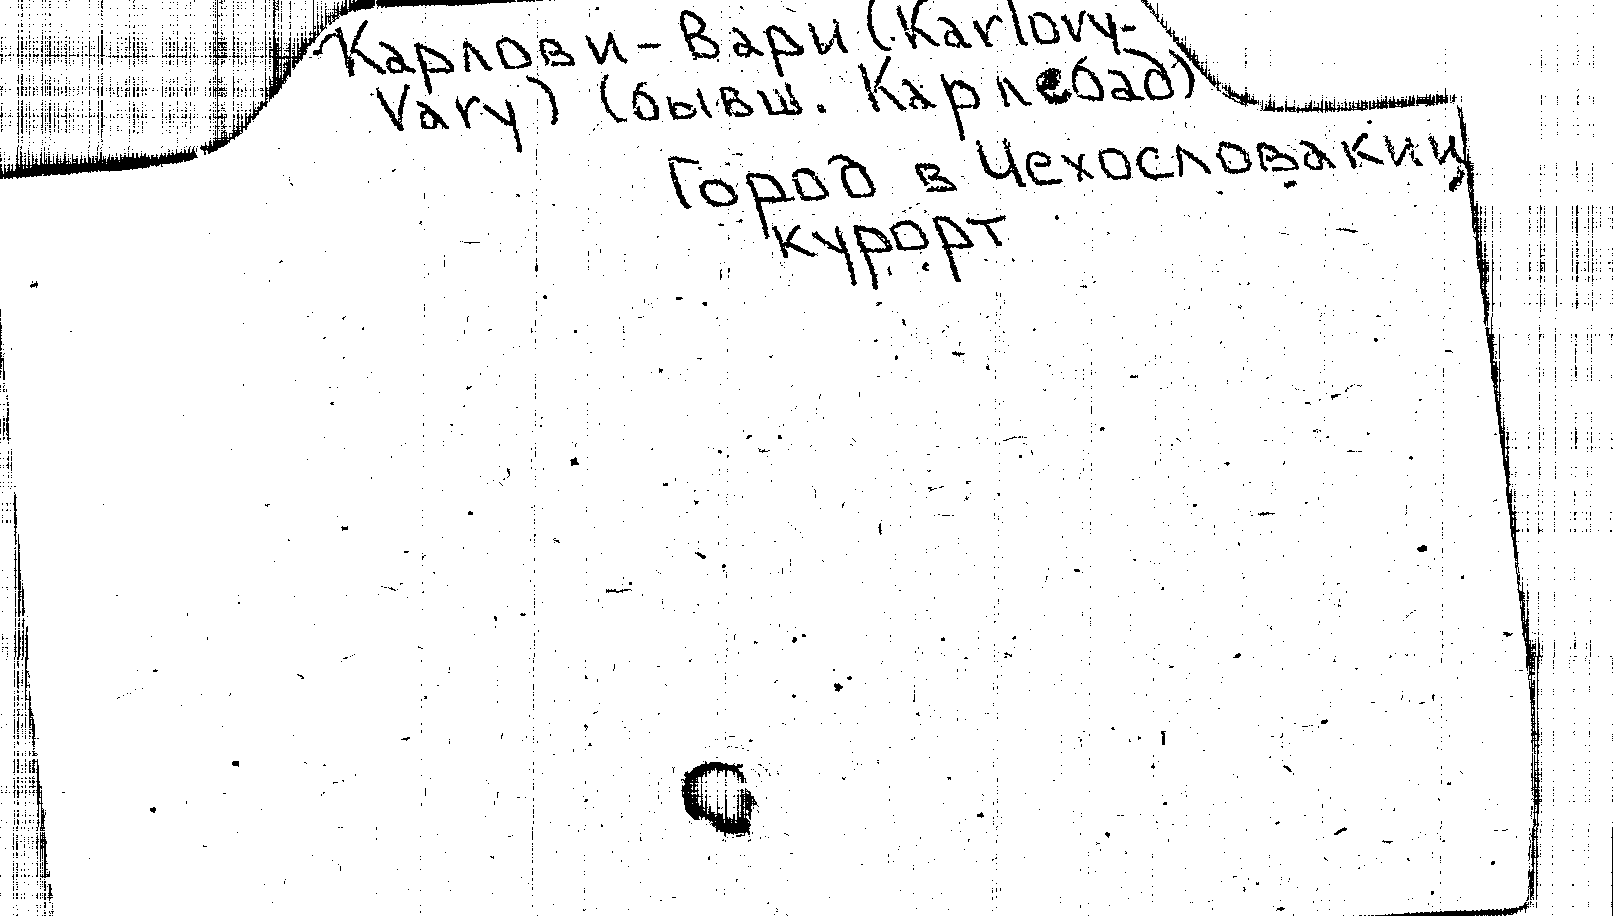 Карлови-Вари (Karlovy-
Vary) (бывш. Карлсбад)
Город в Чехословакии,
курорт